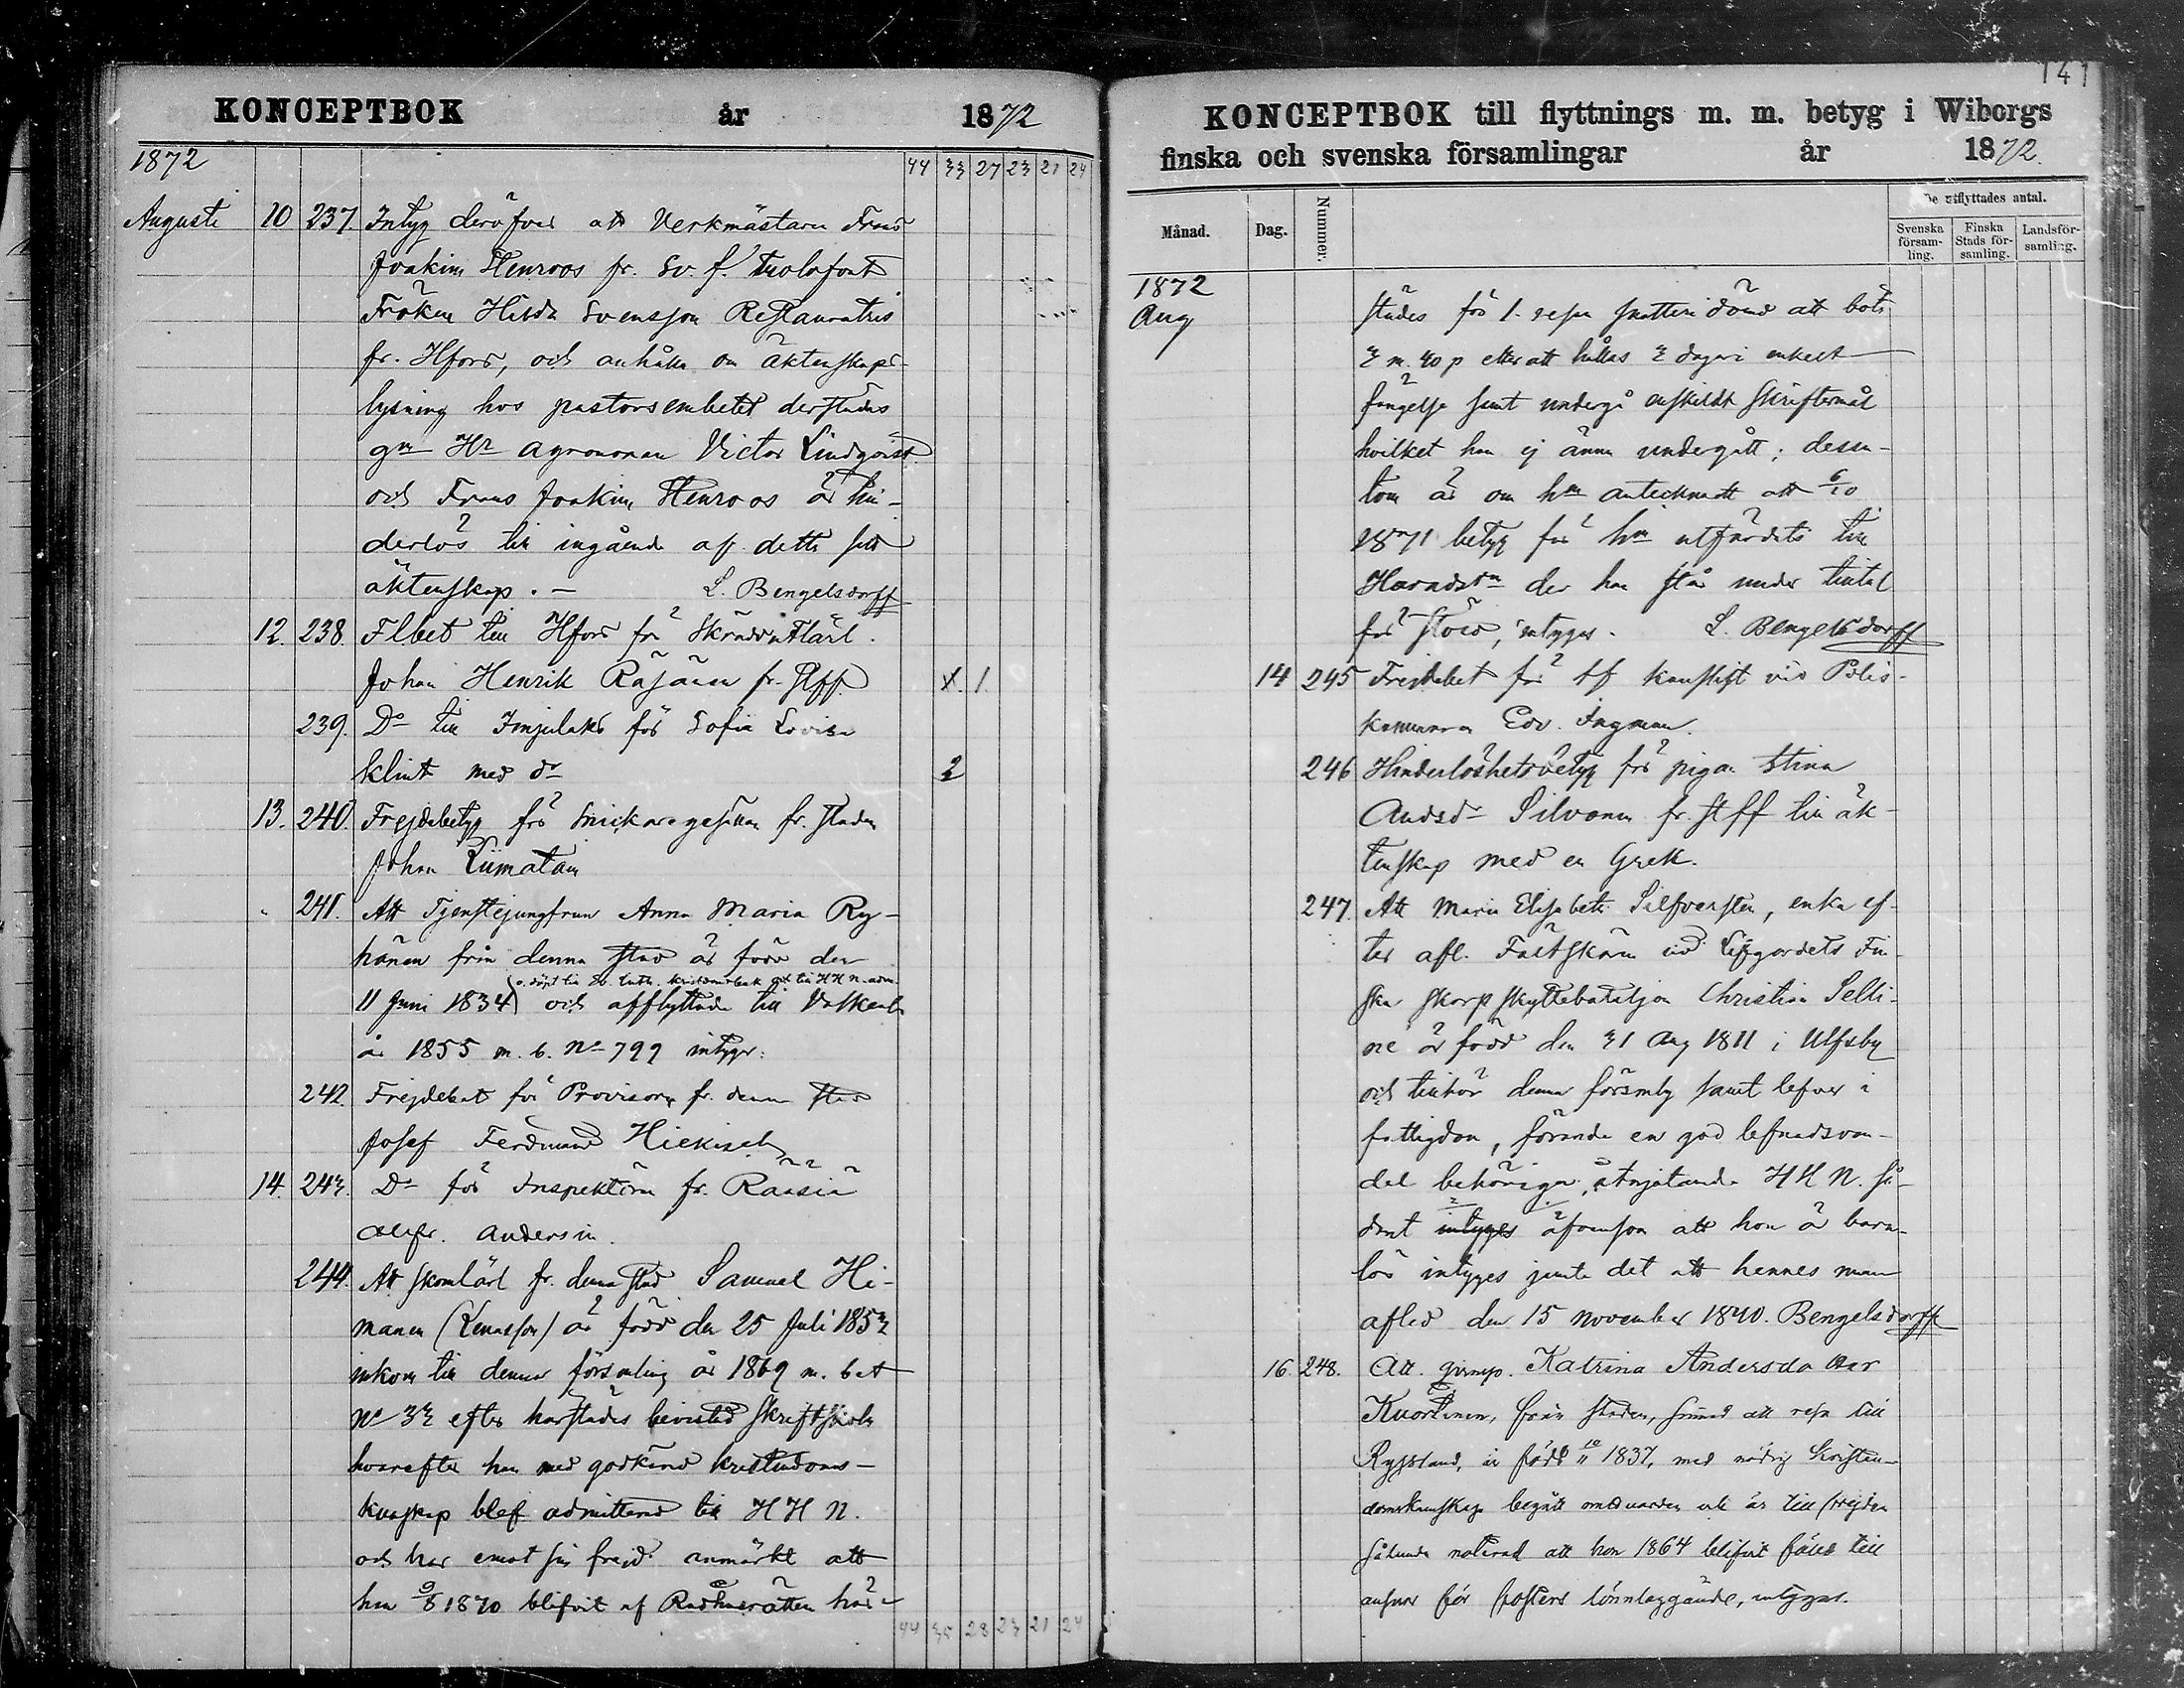 KONCEPTBOK år 1872
1872 44 33 27 23 21 24
Augusti 10 237. Intyg deröfver att Verkmästaren Frans
Joakim Stenroos fr. Sv. f. trolofvat
Fröken Hilda Svensson Restauratris
fr. Hfors, och anhålla om äktenskaps-
lysning hos pastorsembetet derstädes
gm Hr agronomen Victor Lindqvist
och Frans Joakim Stenroos är hin-
derlös till ingående af detta sitt
äktenskap. — L. Bengelsdorff
12. 238. Flbet till Hfors för Skräddrlärl.
Johan Henrik Räsänen fr. Stff. X. 1
239. Do till Impilaks för Sofia Lovisa
Klint med dr 2
13. 240. Frejdebetyg för Snickaregesällen fr. staden
Johan Liimatain
" 241. Att Tjenstejungfrun Anna Maria Ry-
hänen från denna stad är född den
11 Juni 1834 och afflyttade till
år 1855 m. b. No 799 intyges:
242. Frejdebet för Provisorn fr. denna stad
Josef Ferdinand Hiekisch
14. 243. Do för Inspektorn fr. Räisiä
Alefr. Andersin.
244. Att skomlärl fr. denna stad Samuel Hi-
manen (Lenasson) är född den 25 Juli 1853
inkom till denna församling år 1869 m. bet
No 33 efter härstädes bevistad Skriftskola
hvarefter han med godkänd kristendoms-
kunskap blef admitterad till H H N.
och har emot sin frejd anmärkt att
han 9/8 1870 blifvit af Rådhusrätten här-
44 35 28 23 21 24
141
KONCEPTBOK till flyttnings m. m. betyg i Wiborgs
finska och svenska församlingar år 1872.
Månad. Dag. Nummer. De utflyttades antal.
Svenska försam-ling. Finska Stads för-samling. Landsför-samling.
1872
Aug städes för 1. resan snatteri dömd att böta
3 m. 40 p eller att hållas 3 dagar i enkelt
fängelse samt undergå enskildt skriftermål
hvilket han ej ännu undergått; dessu-
tom är om hm antecknadt att 6/10
1871 betyg för hm utfärdats till
der han står under tilltal
för stöld, intyges. L. Bengelsdorff
14 245 Frejdebet för tf kanslist vid Polis-
kammaren Edv. Ingman.
246 Hinderlöshetsbetyg för pigan Stina
Andsdr Silvonen fr. Stff till äk-
tenskap med en Grek.
247. Att Maria Elisabeth Silfversten, enka ef-
ter afl. Fältskärn vid Lifgardets Fin-
ska Skarpskyttebataljon Christian Selli-
ne är född den 31 Aug 1811 i Ulfsby
och tillhör denna försmlg samt lefver i
fattigdom, förande en god lefnadsvan-
del behörigen åtnjutande H H N. så-
dant intyges äfvensom att hon är barn-
lös intyges jemte det att hennes man
afled den 15 November 1840. Bengelsdorff
16. 248. Att Katrina Andersdotter
Kuortinen, från staden, sinnad att resa till
Ryssland, är född 10/11 1837, med nödig kristen-
domskunskap begått omed varden och är till frejden
sålunda noterad att hon 1864 blifvit fälld till
ansvar för fosters lönnläggande, intyges.